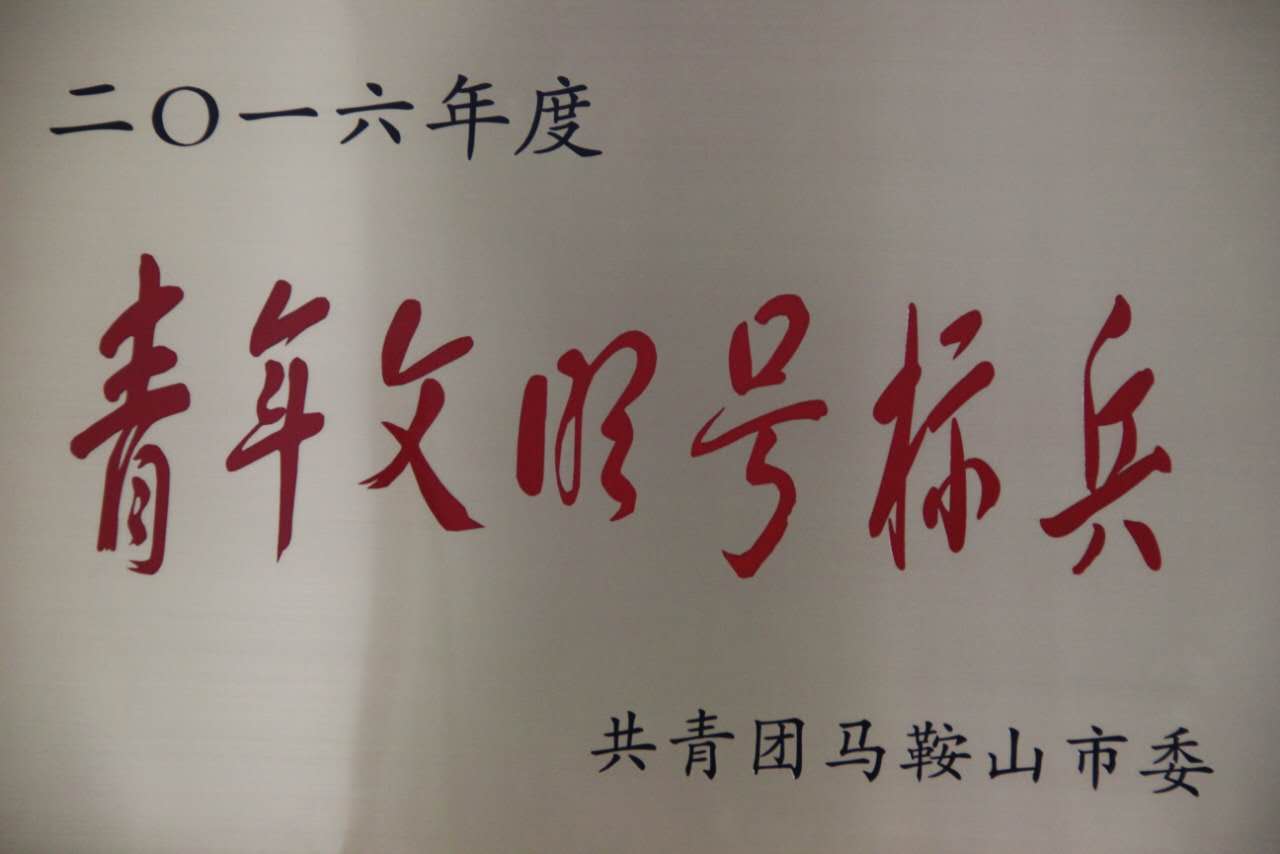 二〇一六年度
青年文明号标兵
共青团马鞍山市委